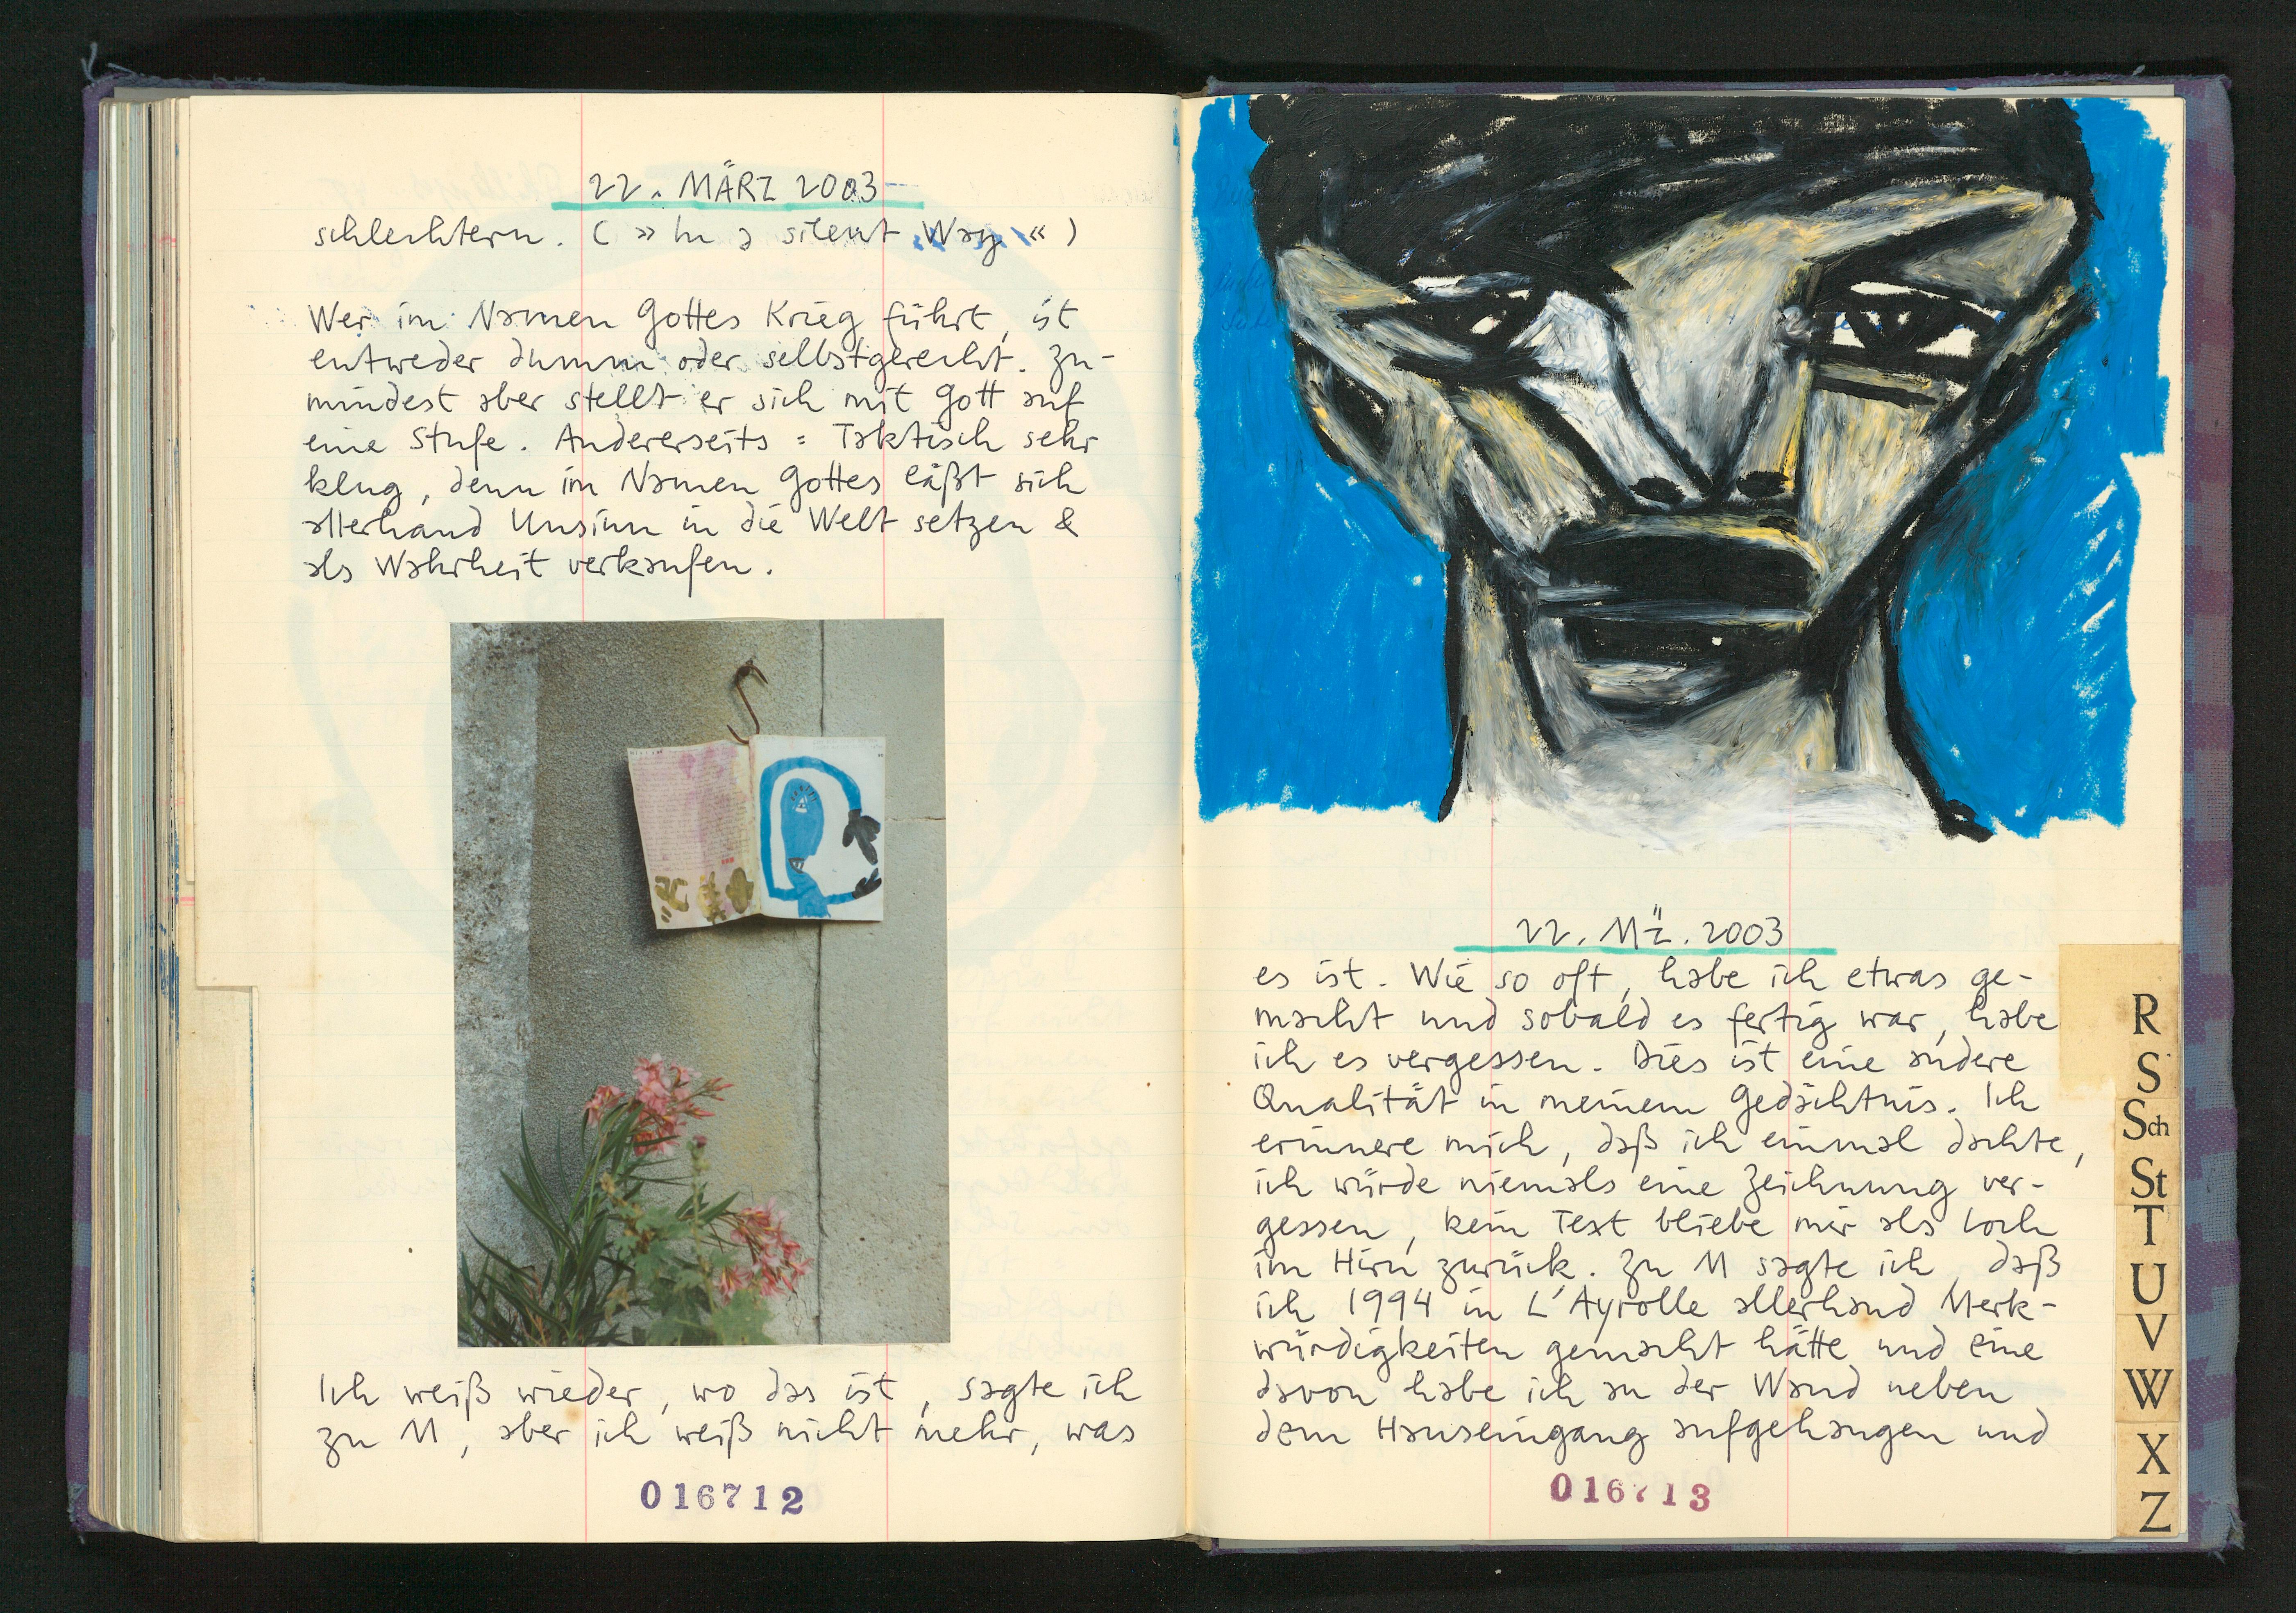 22. MÄRZ 2003
schlechtern. (»In a silent Way«)
Wer im Namen Gottes Krieg führt, ist
entweder dumm oder selbstgerecht. Zu-
mindest aber stellt er sich mit Gott auf
eine Stufe. Andererseits: Taktisch sehr
klug, denn im Namen Gottes läßt sich
allerhand Unsinn in die Welt setzen &
als Wahrheit verkaufen.
Ich weiß wieder, wo das ist, sagte ich
zu M, aber ich weiß nicht mehr, was
016712
22. MÄ. 2003
es ist. Wie so oft, habe ich etwas ge-
macht und sobald es fertig war, habe
ich es vergessen. Dies ist eine andere
Qualität in meinem Gedächtnis. Ich
erinnere mich, daß ich einmal dachte,
ich würde niemals eine Zeichnung ver-
gessen, kein Text bliebe mir als Loch
im Hirn zurück. Zu M sagte ich, daß
ich 1994 in L'Ayrolle allerhand Merk-
würdigkeiten gemacht hätte und eine
davon habe ich an der Wand neben
dem Hauseingang aufgehangen und
016713
R
S
Sch
St
T
U
V
W
X
Z